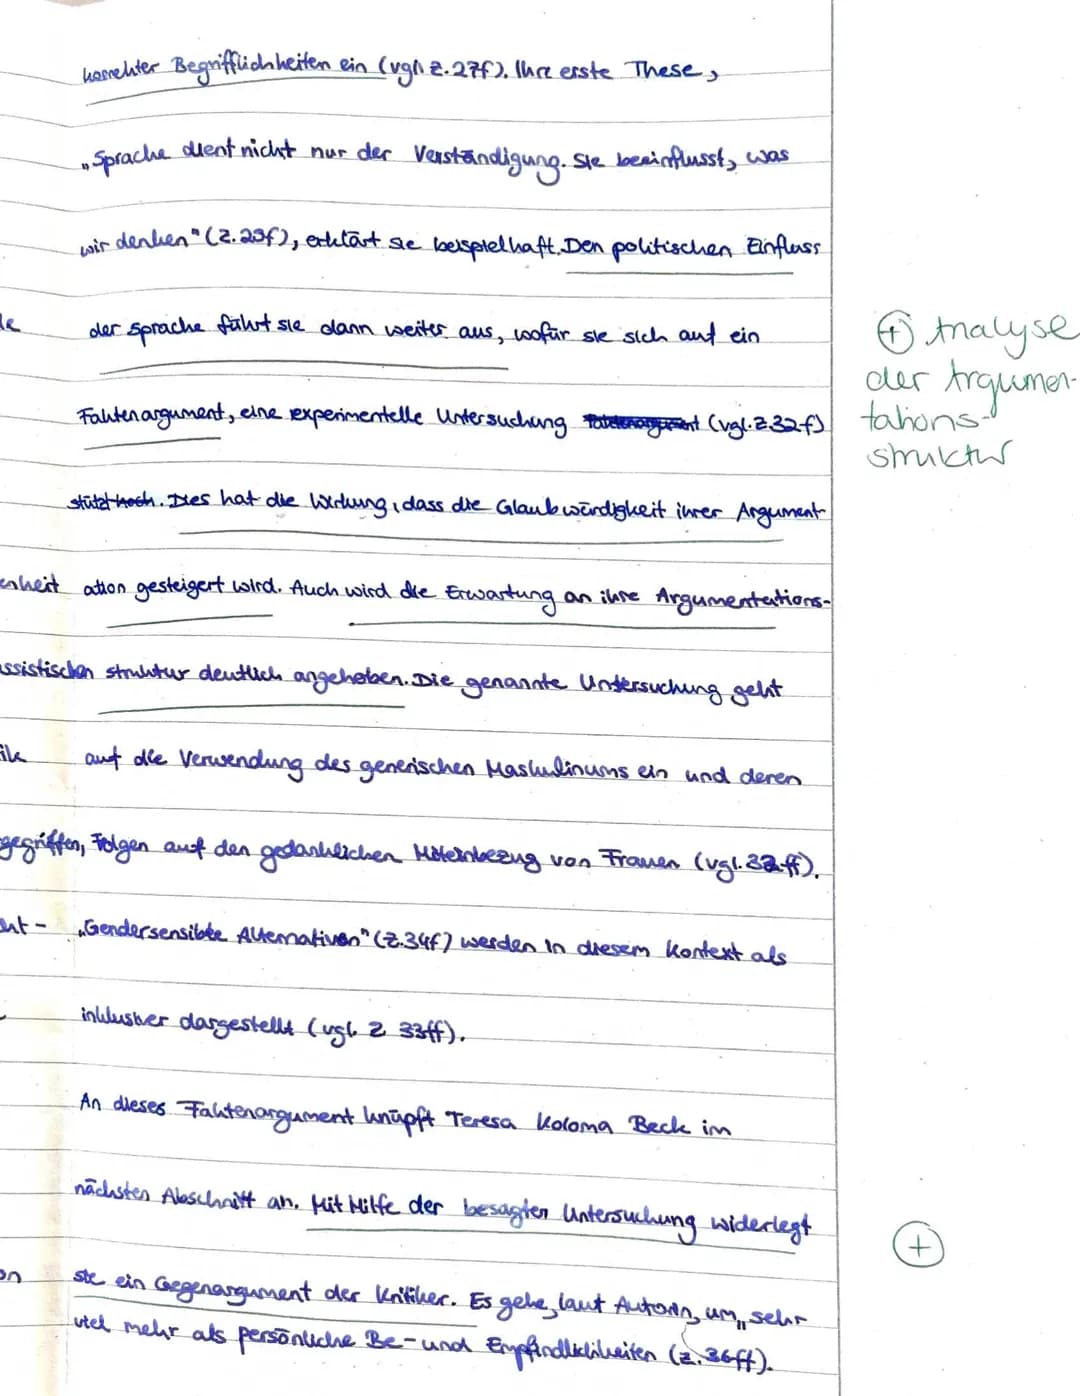 korrekter Begrifflichkeiten ein (vgl. Z.27f). Ihre erste These,
„Sprache dient nicht nur der Verständigung. Sie beeinflusst, was
wir denken" (Z.29f), erklärt sie beispielhaft. Den politischen Einfluss
der Sprache führt sie dann weiter aus, wofür sie sich auf ein
⊕ Analyse
der Argumen-
tations-
struktur
Faktenargument, eine experimentelle Untersuchung Faktenargument (vgl. Z.32f)
stützt noch. Dies hat die Wirkung, dass die Glaubwürdigkeit ihrer Argument
enheit ation gesteigert wird. Auch wird die Erwartung an ihre Argumentations-
ssistischen struktur deutlich angehoben. Die genannte Untersuchung geht
ik auf die Verwendung des generischen Maskulinums ein und deren
gegriffen, Folgen auf den gedanklichen Miteinbezug von Frauen (vgl. 32ff).
„Gendersensible Alternativen" (Z.34f) werden in diesem Kontext als
inklusiver dargestellt (vgl. Z 33ff).
An dieses Faktenargument knüpft Teresa Koloma Beck im
nächsten Abschnitt an. Mit Hilfe der besagten Untersuchung widerlegt
⊕
on sie ein Gegenargument der Kritiker. Es gehe, laut Autorin, um „sehr
viel mehr als persönliche Be- und Empfindlichkeiten (Z.36ff).